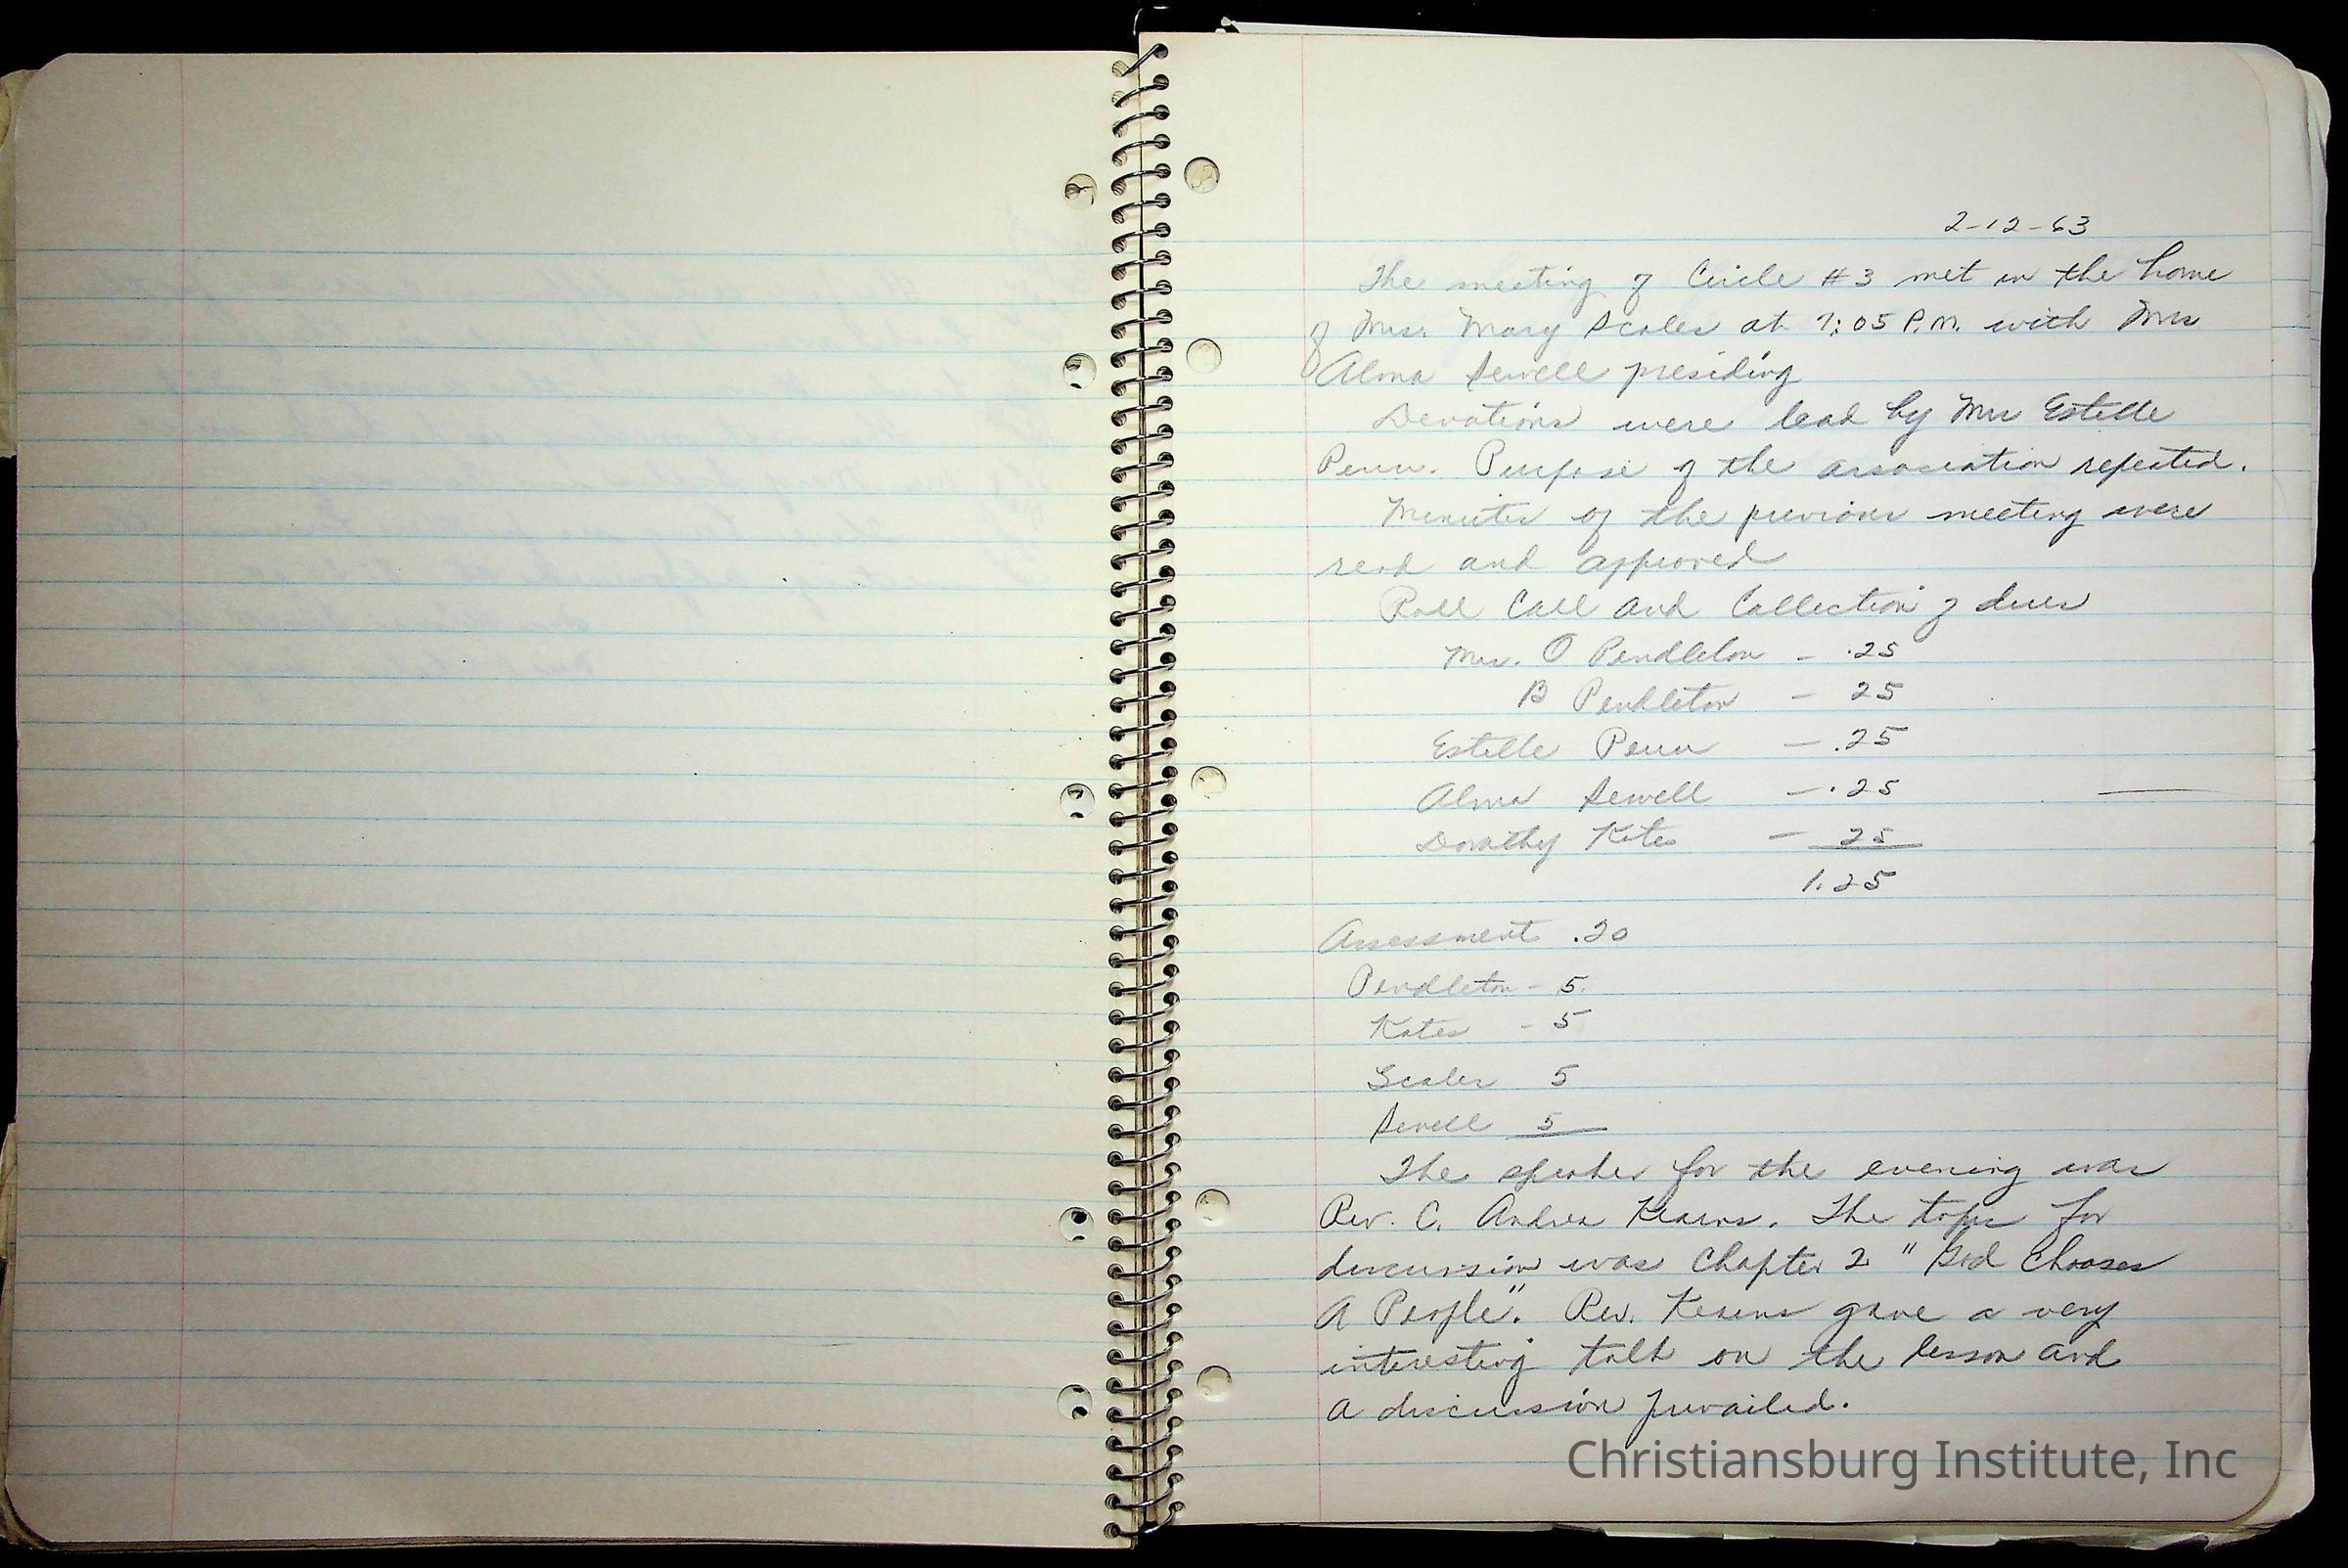 2-12-63
The meeting of Circle #3 met in the home
of Mrs. Mary Scales at 7:05 P.M. with Mrs
Alma Sewell presiding
Devotions were lead by Mrs Estelle
Penn. Purpose of the association repeated.
Minutes of the previous meeting were
read and approved
Roll Call and Collection of dues
Mrs. O Pendleton - .25
B Pendleton - 25
Estelle Penn - .25
Alma Sewell - .25
Dorothy Kates - 25
1.25
Assessment .20
Pendleton - 5.
Kates - 5
Scales 5
Sewell 5
The speaker for the evening was
Rev. C. Andrea Kearns. The topic for
discussion was Chapter 2 "God Chooses
A People". Rev. Kearns gave a very
interesting talk on the lesson and
a discussion prevailed.
Christiansburg Institute, Inc